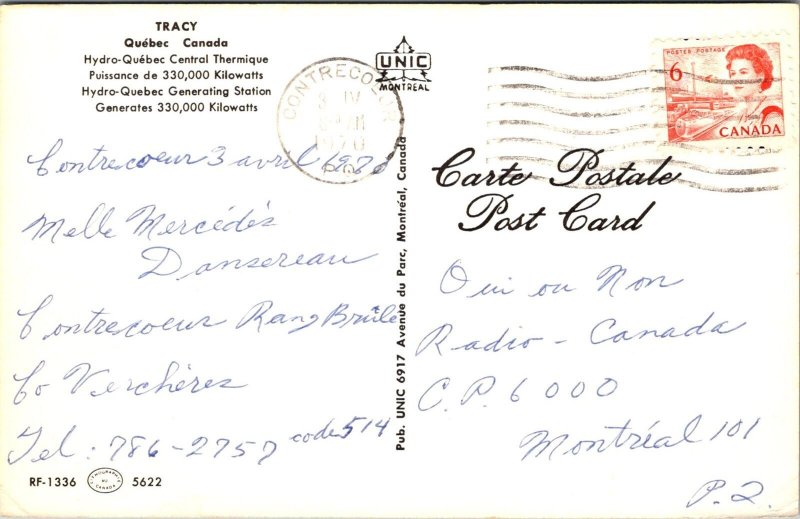 TRACY
Québec Canada
Hydro-Québec Central Thermique
Puissance de 330,000 Kilowatts
Hydro-Quebec Generating Station
Generates 330,000 Kilowatts
UNIC
MONTREAL
CONTRECOEUR
IV
1970
P.Q.
POSTES POSTAGE
6
CANADA
Contrecoeur 3 avril 1970
Melle Mercédès
Dansereau
Contrecoeur Rang Brûlé
Co Verchères
Tel: 786-2757 code 514
RF-1336
LITHOGRAPHIE
AU
CANADA
5622
Pub. UNIC 6917 Avenue du Parc, Montréal, Canada
Carte Postale
Post Card
Oui ou Non
Radio-Canada
C.P. 6000
Montréal 101
P.Q.